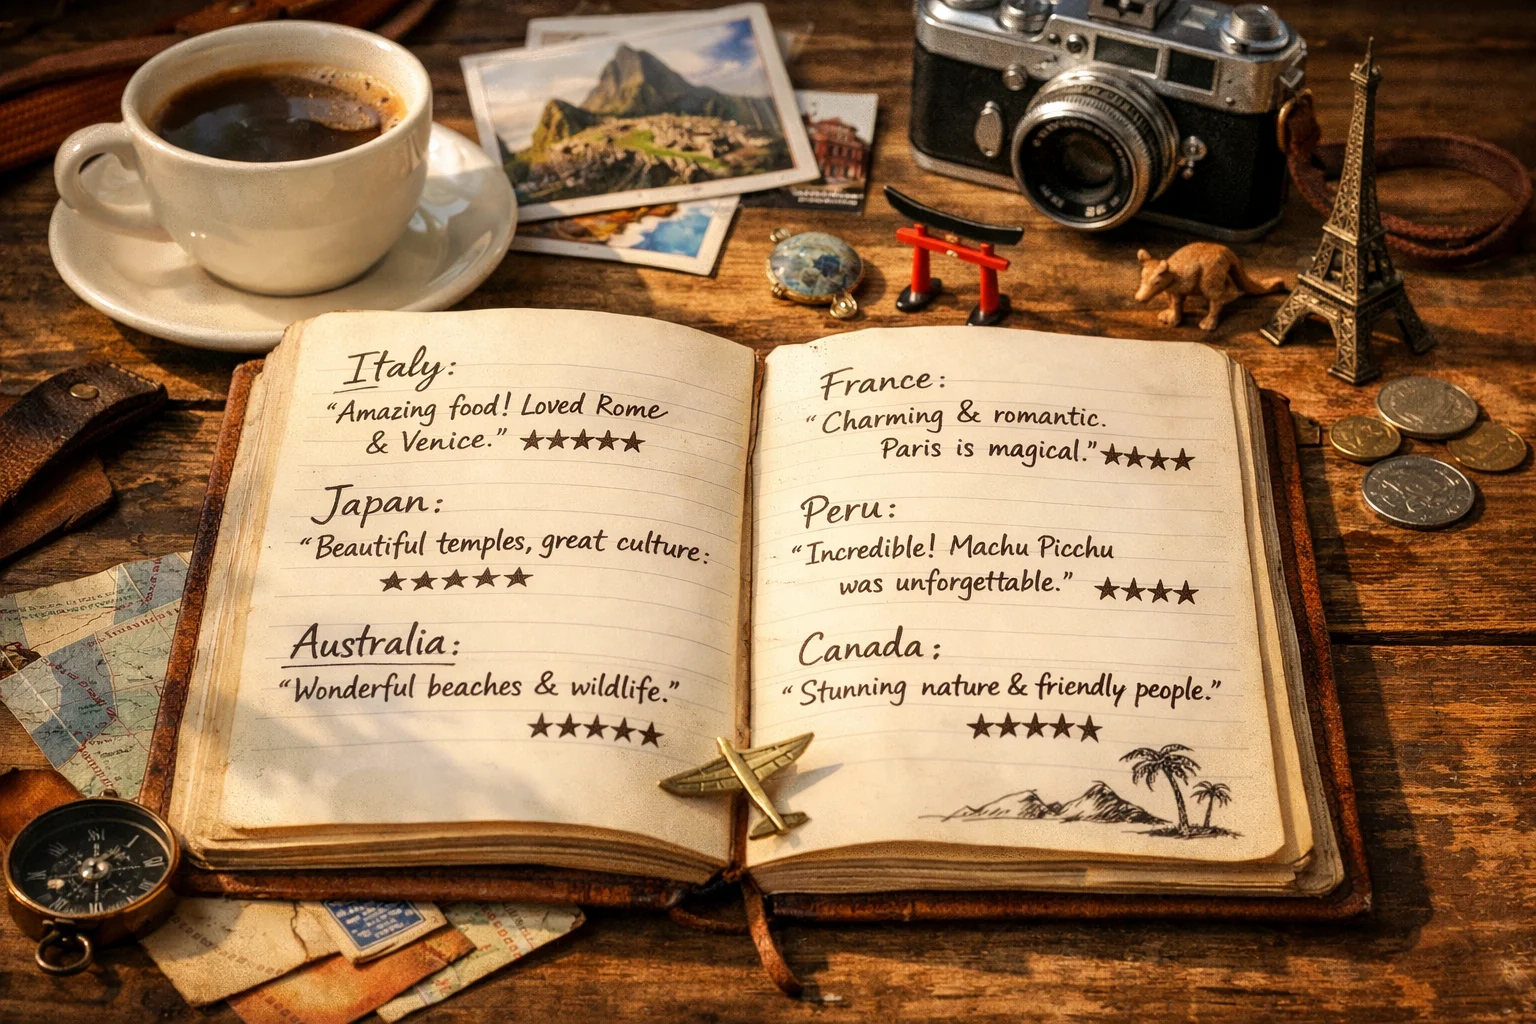 Italy:
“Amazing food! Loved Rome
& Venice.” ★★★★★
Japan:
“Beautiful temples, great culture:
★★★★★
Australia:
“Wonderful beaches & wildlife.”
★★★★★
France:
“Charming & romantic.
Paris is magical.” ★★★★
Peru:
“Incredible! Machu Picchu
was unforgettable.” ★★★★
Canada:
“Stunning nature & friendly people.”
★★★★★